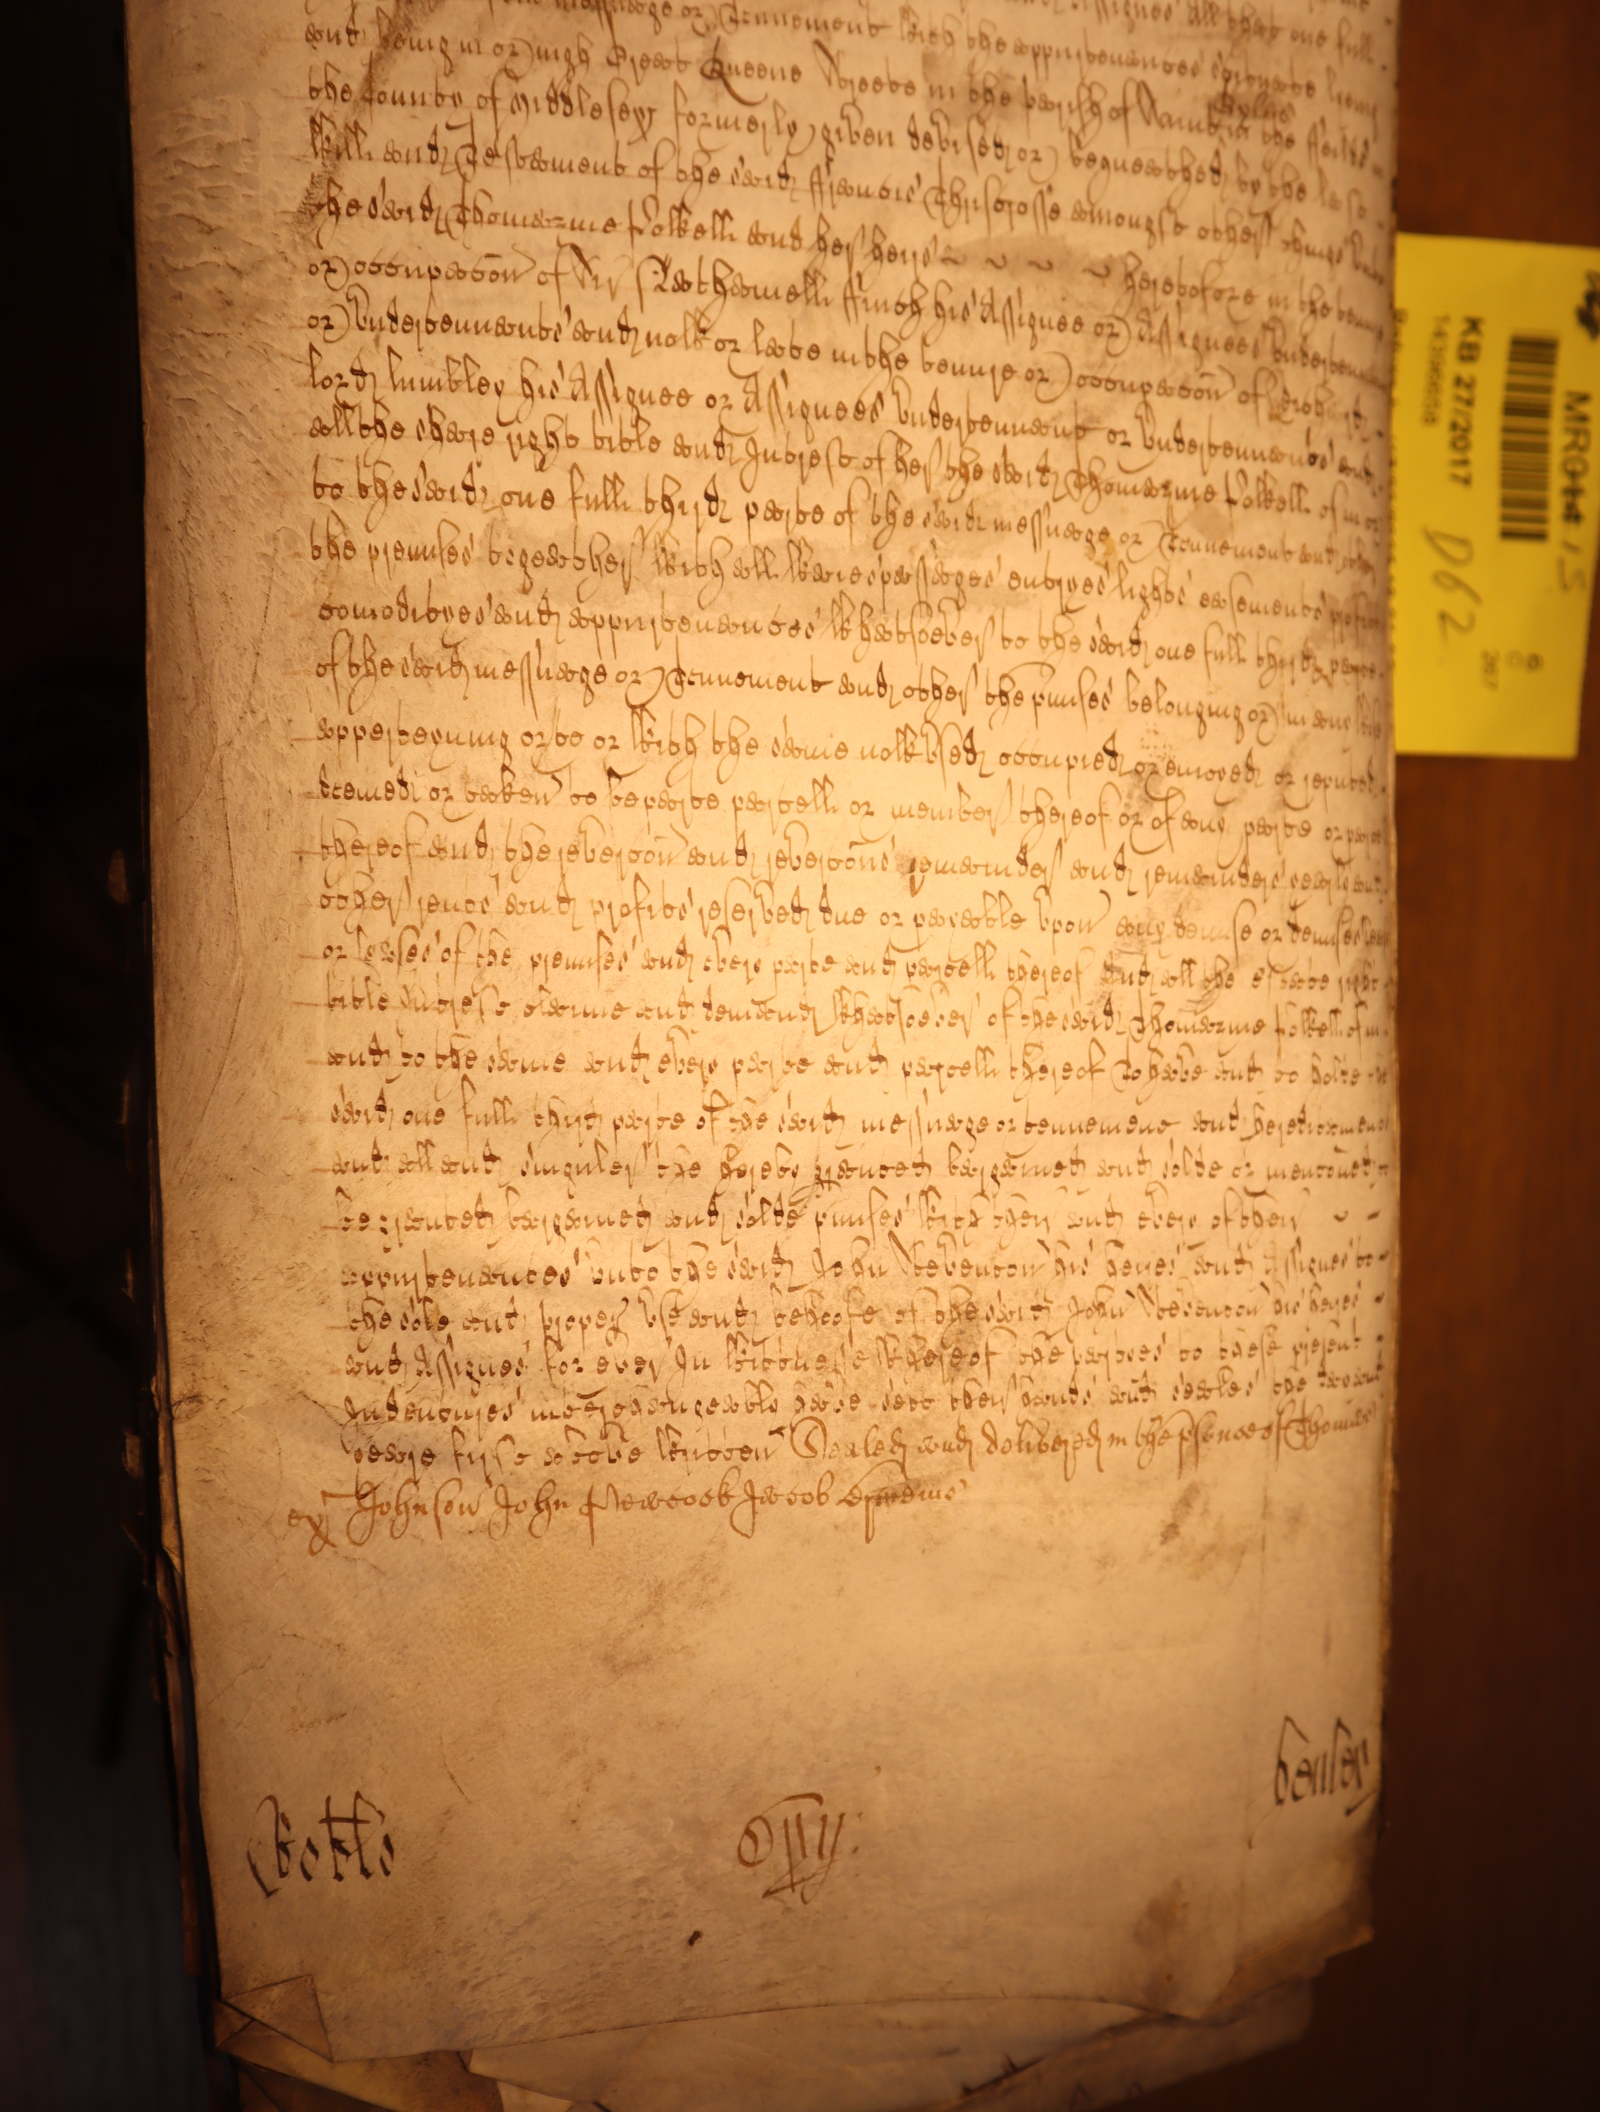 messuage or Tennement with the appurtenances scituate lieing
and being in or nigh Great Queene Streete in the parish of Saint Gyles in the ffeilds in
the County of Middlesex formerly given devised or bequeathed by the last
will and Testament of the said ffrancis Thriscrosse amongst other things unto
the said Thomazine Folkell and her heirs heretofore in the tenure
or occupacōn of Sir Nathaniell ffinch his Assignee or Assignees undertennant
or undertennants and now or late in the tenure or occupacōn of
lord lumbley his Assignee or Assignees undertennant or undertennants and
all the share right title and Intrest of her the said Thomazine Folkell of in or
to the said one full third parte of the said messuage or Tennement and other
the premises togeather with all waies passages entryes lights easements profitts
comodityes and appurtenances whatsoever to the said one full third parte
of the said messuage or Tennement and other the pmises belonging or in any wise
apperteyning or to or with the same now used occupied or enioyed or reputed
deemed or taken to be parte parcell or member thereof or of any parte or parcell
thereof and the revercōn and revercōns remainder and remainders rents and
other rents and profits reserved due or payable upon any demise or demises lease
or leases of the premises and every parte and parcell thereof And all the estate right
title Intrest clayme and demand whatsoever of the said Thomazine Folkell of in
and to the same and every parte and parcell thereof To have and to holde the
said one full third parte of the said messuage or tennement and hereditaments
and all and singuler the hereby granted bargained and solde or mencōned to
be granted bargained and solde pmises with their and every of their
appurtenances unto the said John Stevenson his heires and Assignes to
the sole and proper use and behoofe of the said John Stevenson his heires
and Assignes for ever In wittnesse whereof the partyes to these present
Indentures interchangeably have sett their hands and seales the day and
yeare first above written Sealed and delivered in the psence of Thomas
ex Johnson John Peacock Jacob
KB 27/2017
D62